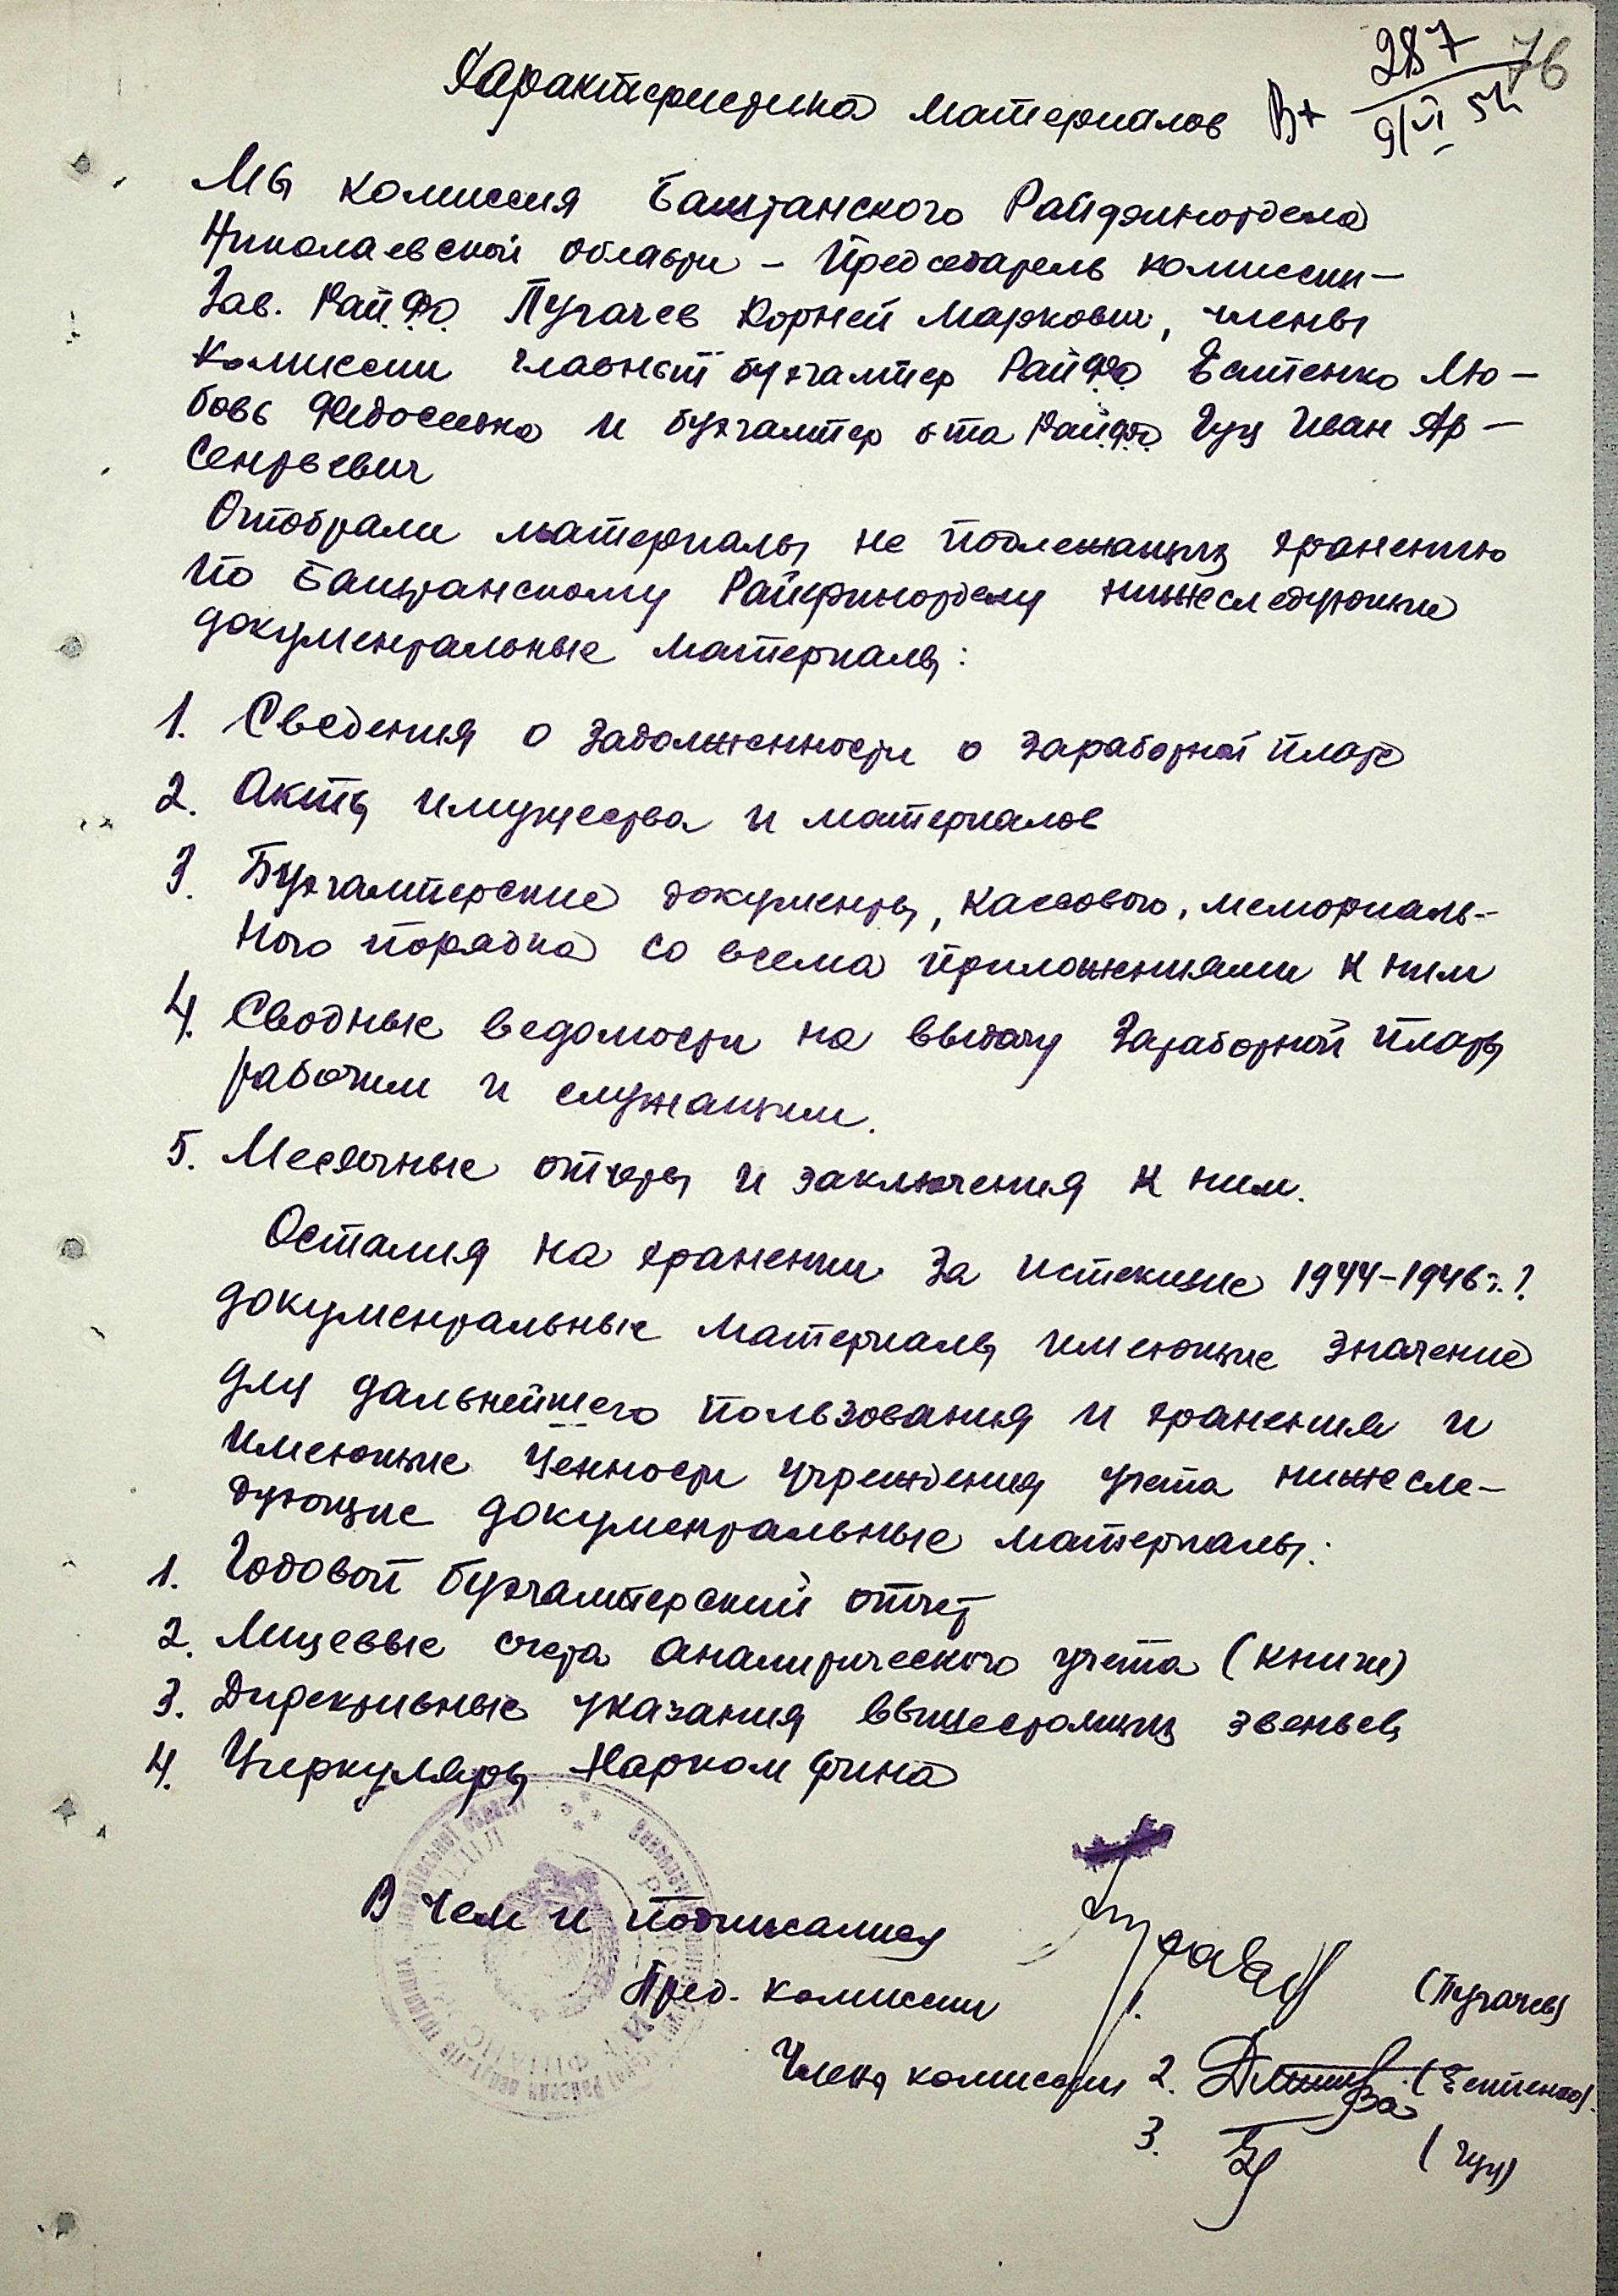 Характеристика материалов Вх 287 76
9/VI 54
Мы комиссия Баштанского Райфинотдела
Николаевской области – Председатель комиссии –
Зав. РайФО Пугачев Корней Маркович, члены
комиссии главный бухгалтер РайФО Евтенко Лю–
бовь Федосеевна и бухгалтер РайФО Гуц Иван Ар–
сентьевич
Отобрали материалы не подлежащих хранению
по Баштанскому Райфинотделу нижеследующие
документальные материалы:
1. Сведения о задолженности о заработной плате
2. Акты имущества и материалов
3. Бухгалтерские документы, кассового, мемориаль–
ного порядка со всема приложениями к ним
4. Сводные ведомости на выдачу заработной платы
рабочим и служащим.
5. Месячные отчеты и заключения к ним.
Осталия на хранении за истекшие 1944–1946 г.г.
документальные материалы имеющие значение
для дальнейшего пользования и хранения и
имеющие ценности учреждения учета нижесле–
дующие документальные материалы:
1. Годовой бухгалтерский отчет
2. Лицевые счета аналитического учета (книги)
3. Директивные указания вышестоящих звеньев
4. Циркуляры Наркомфина
В чем и подписались
Пред. комиссии 1. (Пугачев)
Члены комиссии 2. (Евтенко).
3. (Гуц)